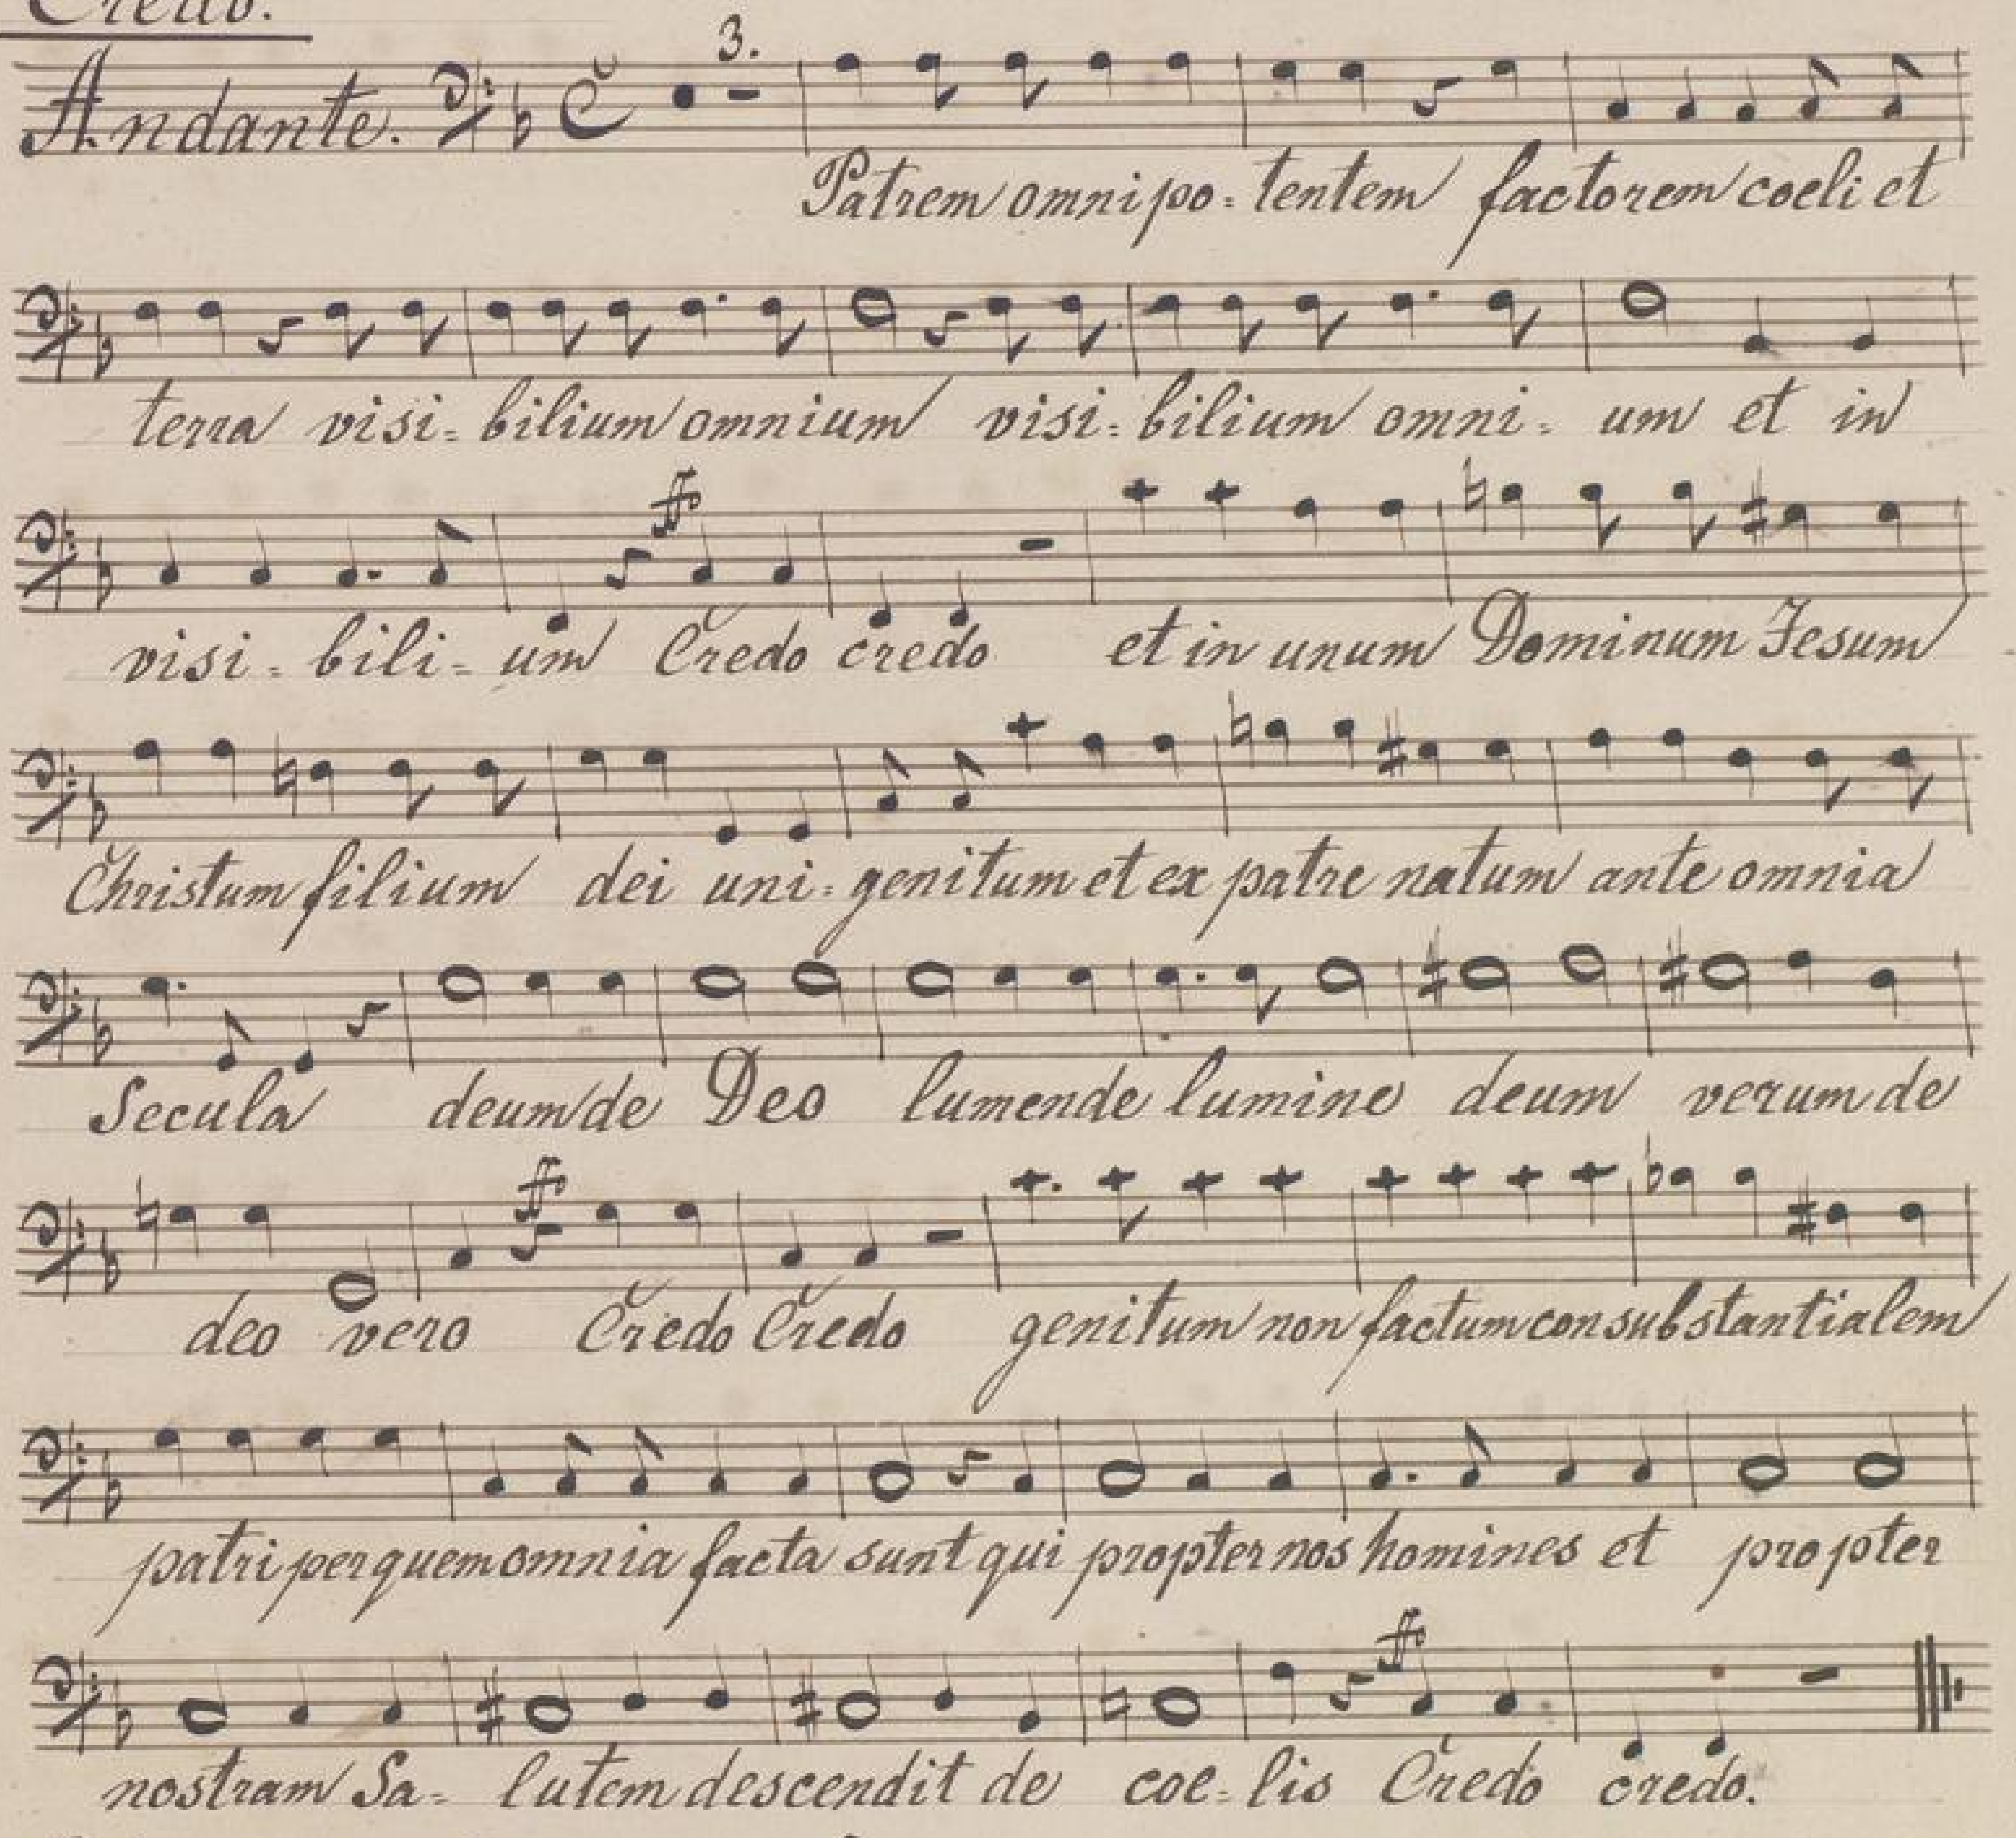 Credo.
3.
Andante.
Patrem omnipo= tentem factorem coeli et
terra visi= bilium omnium visi= bilium omni= um et in
ff
visi= bili= um Credo credo et in unum Dominum Jesum
Christum filium dei uni= genitum et ex patre natum ante omnia
Secula deum de Deo lumen de lumine deum verum de
ff
deo vero Credo Credo genitum non factum consubstantialem
patri per quem omnia facta sunt qui propter nos homines et propter
ff
nostram Sa= lutem descendit de coe= lis Credo credo.